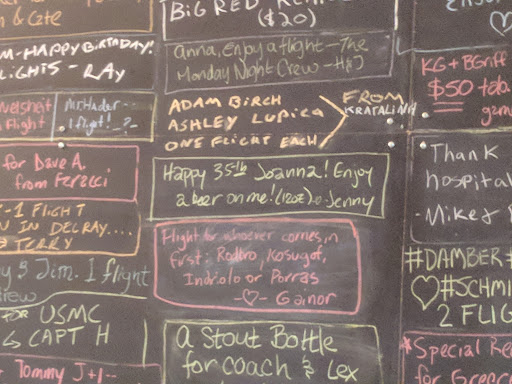 & Cate
M-HAPPY BIRTHDAY!
LIGHTS - RAY
Flight
Mr. Hader --
1 flight! -?-
for Dave A.
from Feracci
-1 FLIGHT
N IN DELRAY....
TERRY
y & Jim. 1 flight
FOR USMC
CAPT H
Tommy J +1--
BIG RED
($20)
anna, enjoy a flight - The
Monday Night Crew - H&J
ADAM BIRCH
ASHLEY LUPICA
ONE FLIGHT EACH
FROM
Happy 35th Joanna! Enjoy
a beer on me! (12oz) - Jenny
Flight for whoever comes in
first: Rodbro, Kosugot,
Indriolo or Porras
-♡- Gainor
a Stout Bottle
for coach & Lex
KG + BGriff
$50
Thank
hospita
- Mike
#DAMBER
♡#SCHMI
2 FLIG
*Special Re
for Green